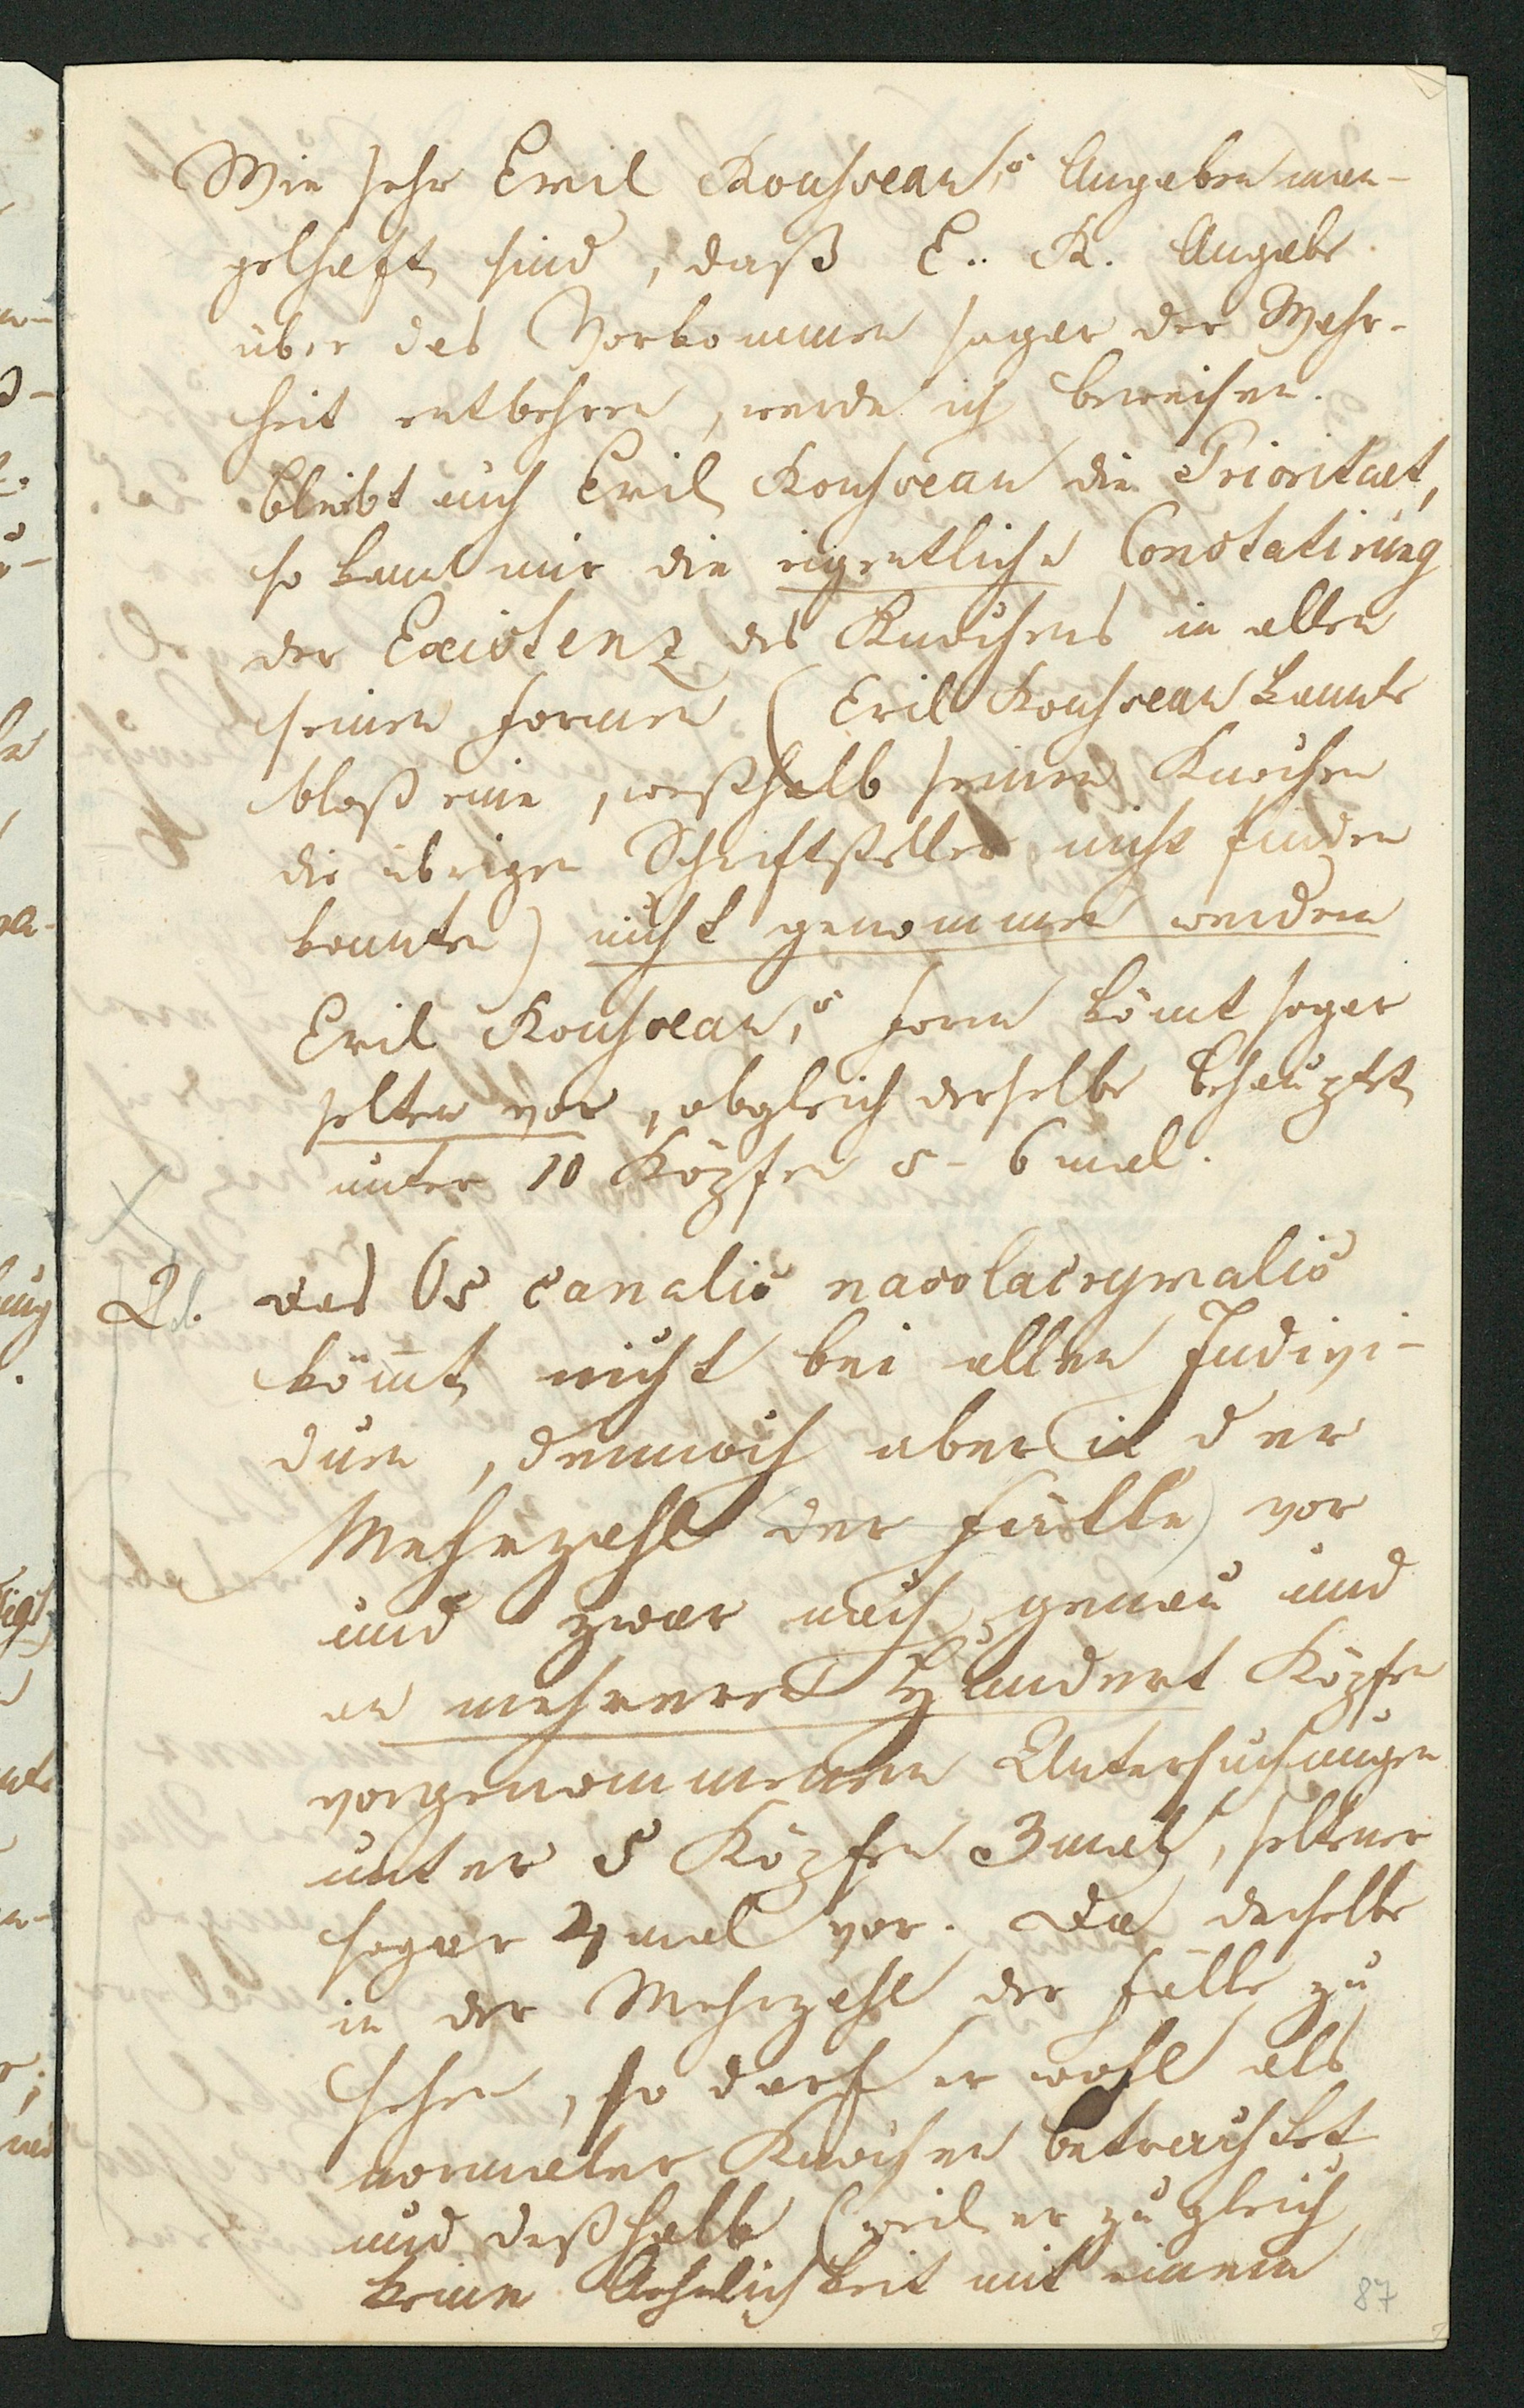 Wie sehr Emil Rousseau's Angaben man-
gelhaft sind, daß E. R. Angabe
über das Vorkommen sogar der Wahr-
heit entbehren, werde ich beweisen.
Bleibt auch Emil Rousseau die Prioritaet,
so kann mir die eigentliche Constatirung
der Existenz des Knochens in allen
seinen Formen (Emil Rousseau kannte
bloß eine, weßhalb seinen Knochen
die übrigen Schriftsteller nicht finden
konnten) nicht genommen werden
Emil Rousseau's Form kömt sogar
selten vor, obgleich derselbe behauptet
unter 10 Köpfen 5-6 mal.
2. Das Os canalis nasolacrymalis
kömt nicht bei allen Indivi-
duen, dennoch aber in der
Mehrzahl der Fälle vor
und zwar nach genau und
an mehreren Hundert Köpfen
vorgenommenen Untersuchungen
unter 5 Köpfen 3 mal, seltener
sogar 4 mal vor. Da derselbe
in der Mehrzahl der Fälle zu
sehen, so darf er wohl als
normaler Knochen betrachtet
und deßhalb (weil er zugleich
keine Aehnlichkeit mit einem
87